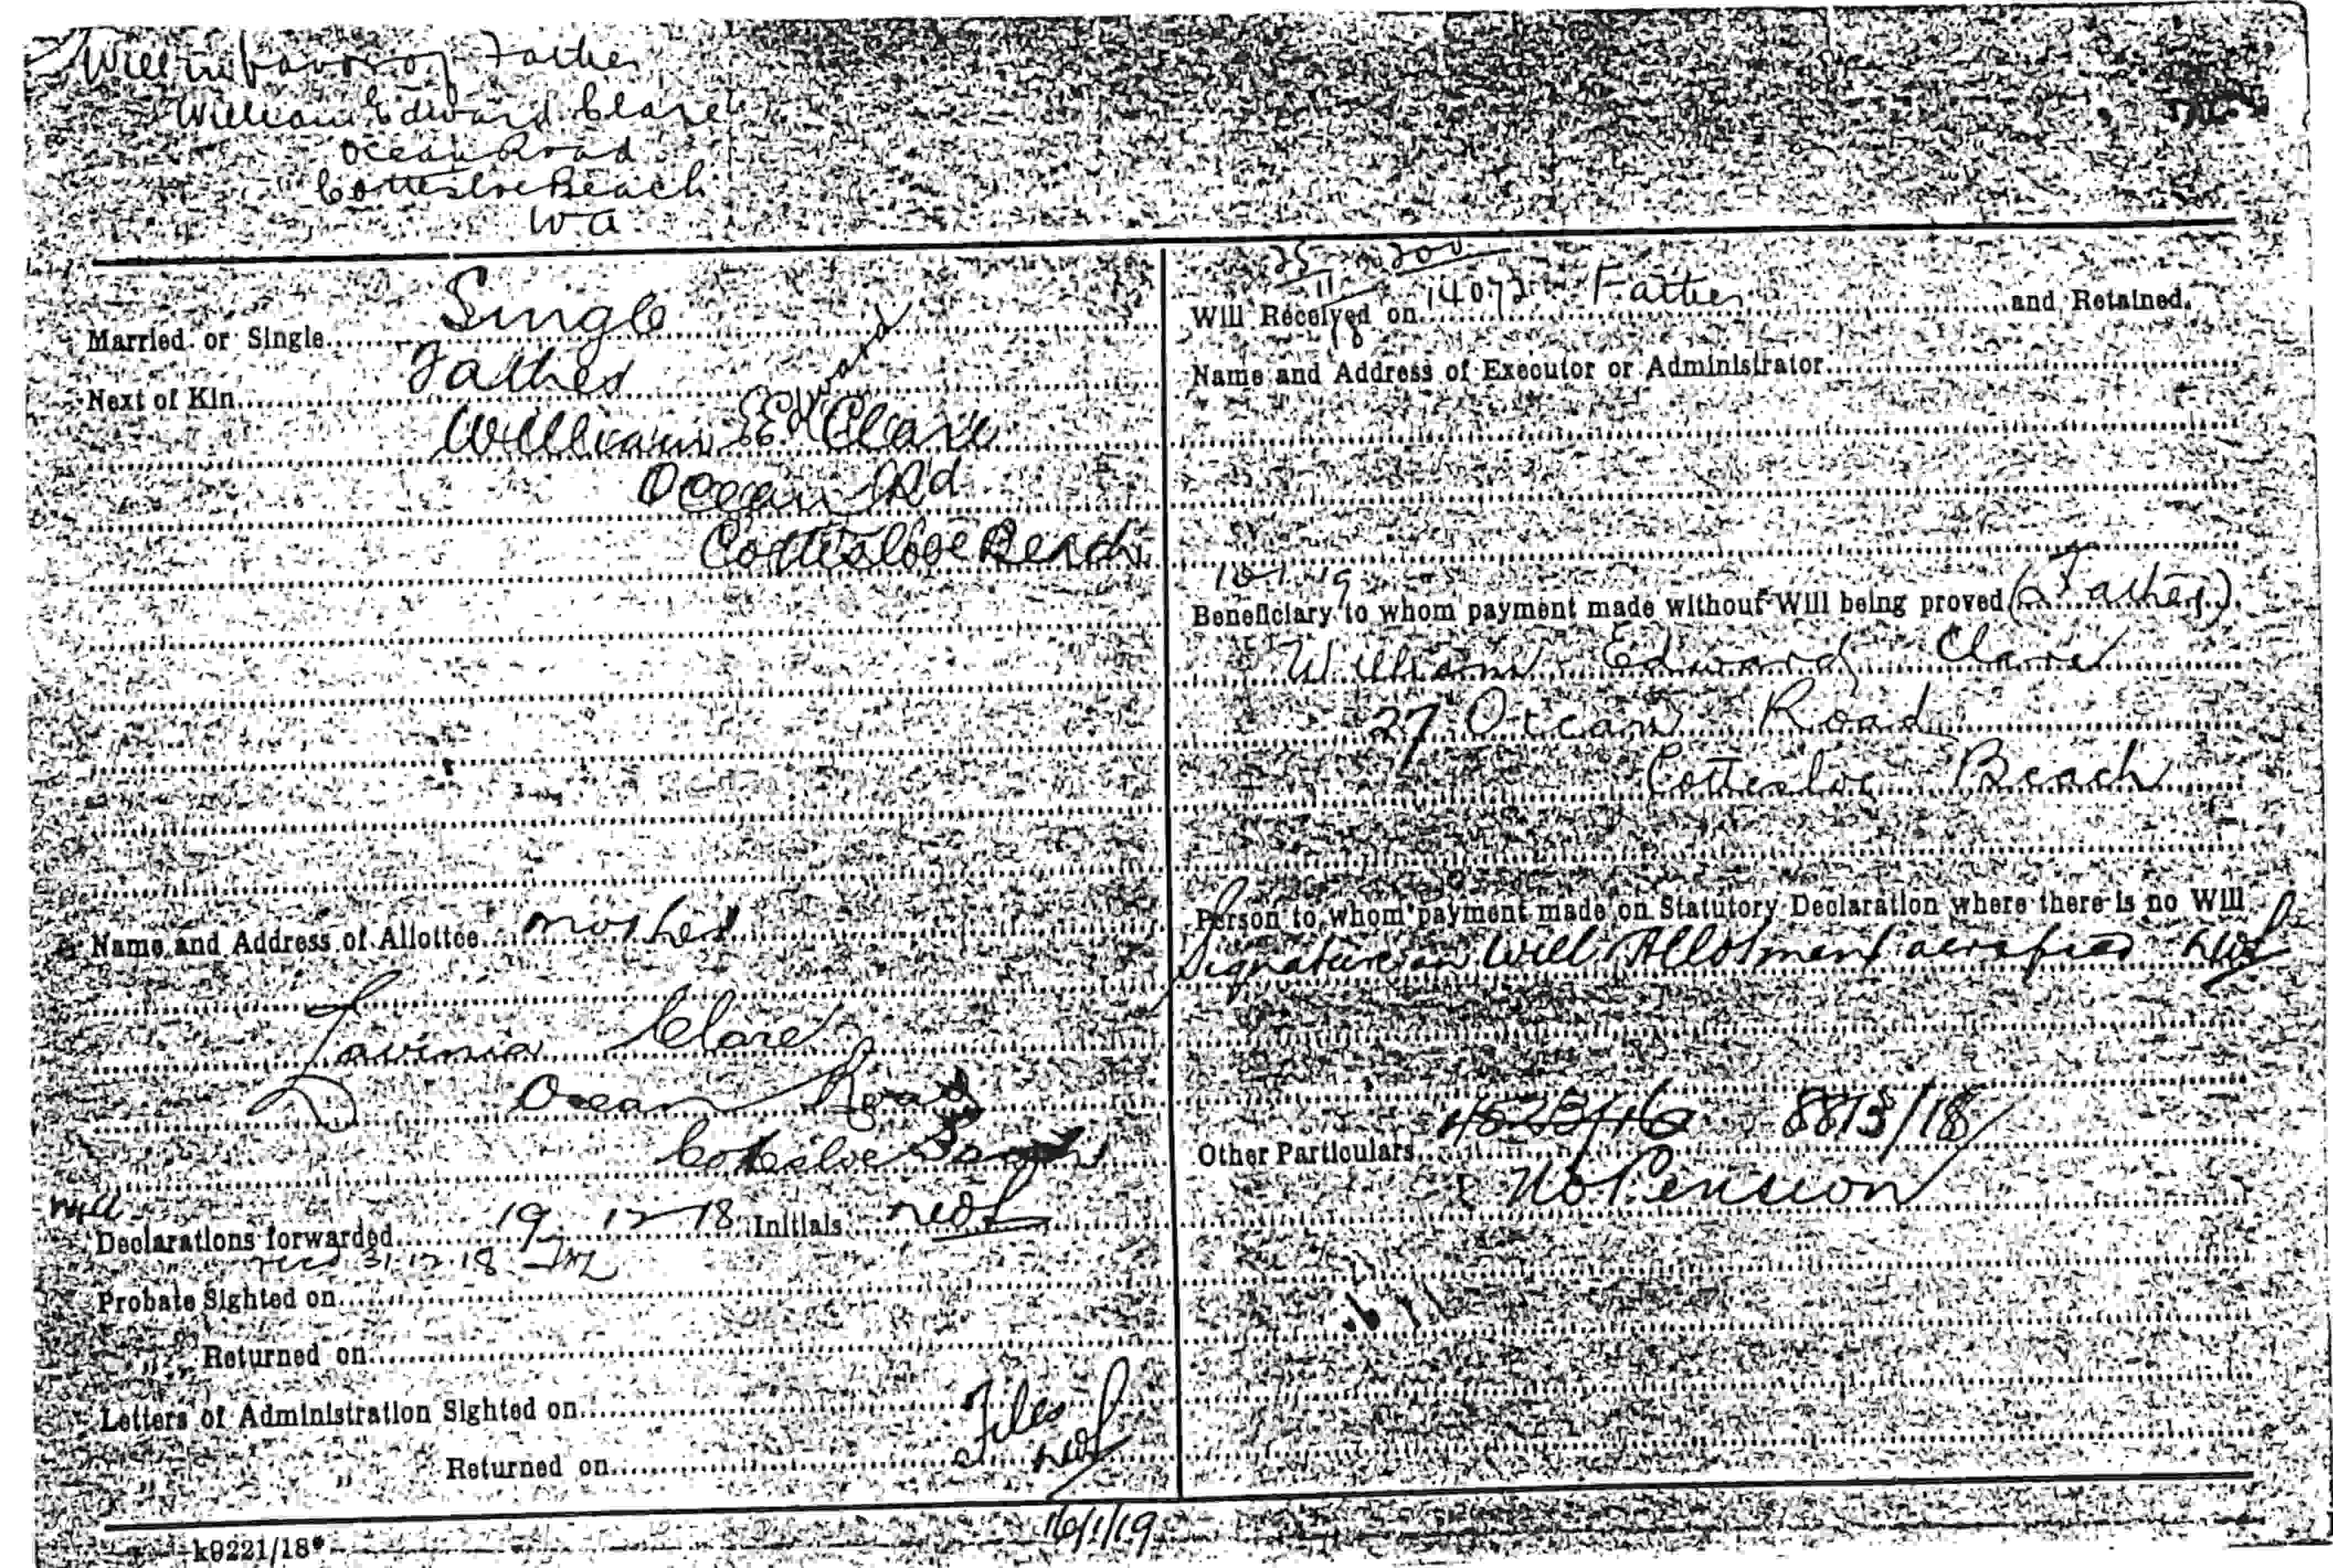 Will in favour of Father
William Edward Clare
Ocean Road
Cottesloe Beach
W.A.
Married or Single Single
Next of Kin Father
William Edward Clare
Ocean Rd
Cottesloe Beach
Name and Address of Allottee Mother
Lavinia Clare
Ocean Road
Cottesloe Beach
Declarations forwarded 19 12 18 Initials
recd 31.12.18
Probate Sighted on
" Returned on
Letters of Administration Sighted on
" " Returned on
Files
16/1/19
k9221/18
25 200
11
18
Will Received on 14072 Father and Retained.
Name and Address of Executor or Administrator
10 1 19
Beneficiary to whom payment made without Will being proved (Father)
William Edward Clare
27 Ocean Road
Cottesloe Beach
Person to whom payment made on Statutory Declaration where there is no Will
Signature on Will Allotment
Other Particulars 8813/18
No Pension